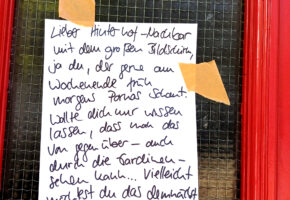 Lieber Hinterhof-Nachbar
mit dem großen Bildschirm,
ja du, der gerne am
Wochenende früh
morgens Pornos schaut.
Wollte dich nur wissen
lassen, dass man das
von gegenüber – auch
durch die Gardinen –
sehen kann... Vielleicht
du das demnächst